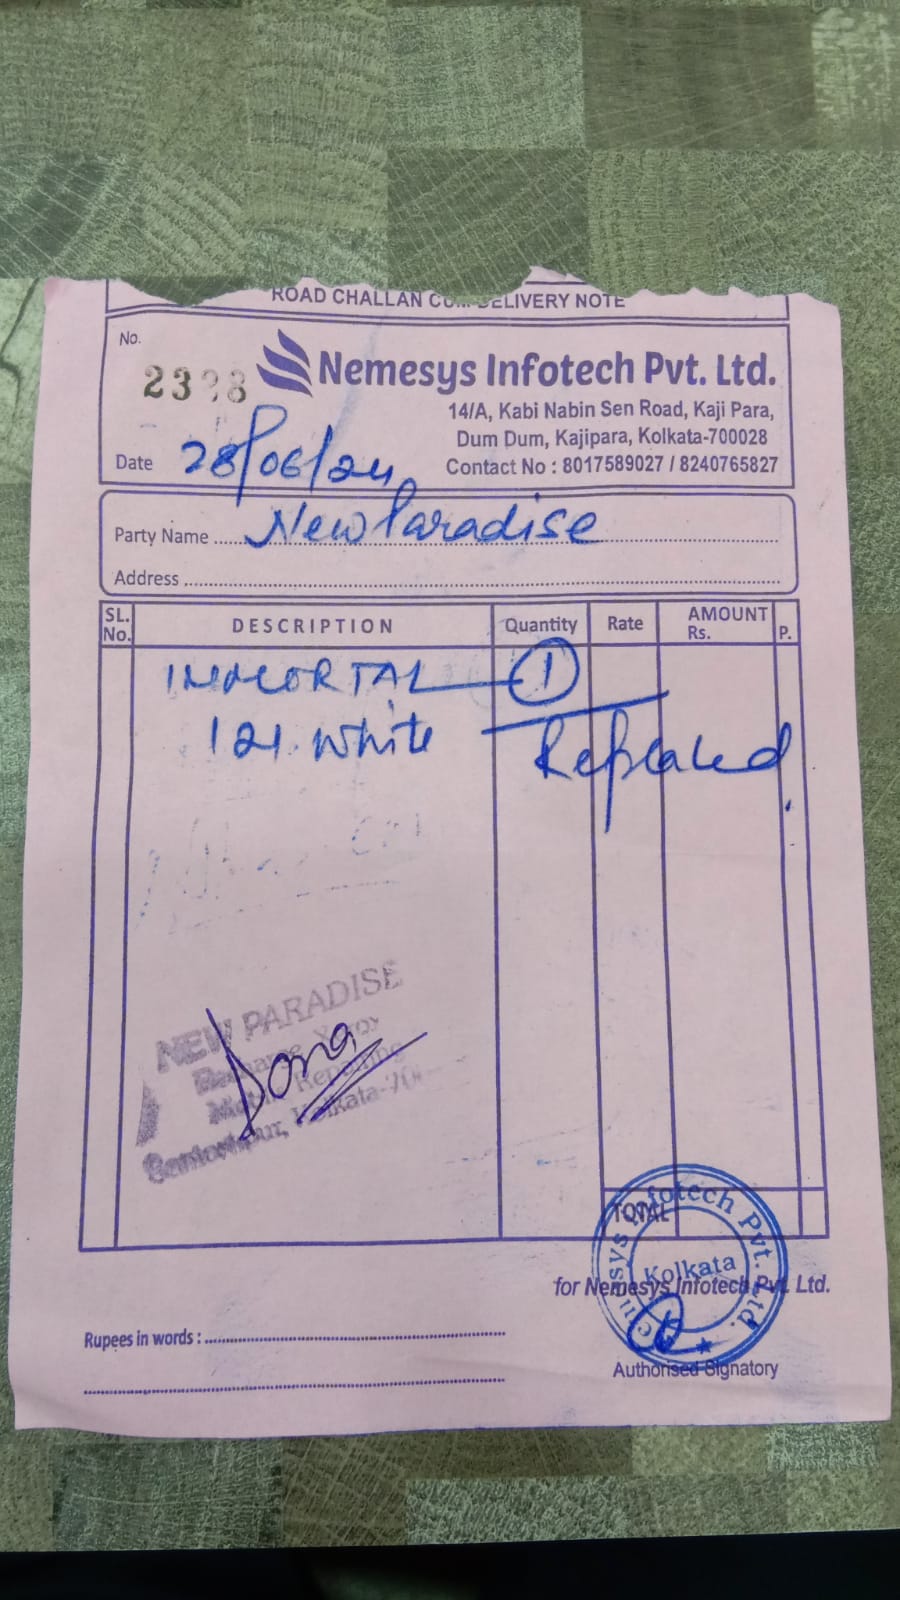 ROAD CHALLAN CUM DELIVERY NOTE
No.
2398
Nemesys Infotech Pvt. Ltd.
14/A, Kabi Nabin Sen Road, Kaji Para,
Dum Dum, Kajipara, Kolkata-700028
Contact No : 8017589027 / 8240765827
Date 28/06/24
Party Name New Paradise
Address
SL. No. DESCRIPTION Quantity Rate AMOUNT Rs. P.
IMMORTAL 1
121 White Replaced
NEW PARADISE
Xerox
Mobile Repairing
Santoshpur, Kolkata-70
Dona
TOTAL
Nemesys Infotech Pvt. Ltd.
Kolkata
for Nemesys Infotech Pvt. Ltd.
Rupees in words :
Authorised Signatory